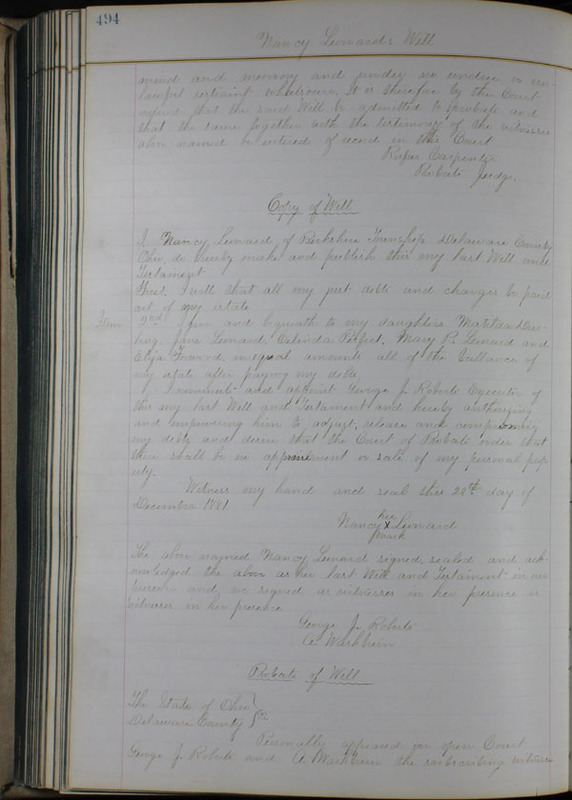 494
Nancy Leonards Will
mind and memory and under no undue or un
lawful restraint whatsoever. It is therefore by the Court
ordered that the said Will be admitted to probate and
that the same together with the testimony of the witnesses
above named be entered of record in this Court
Rufus Carpenter
Probate Judge.
Copy of Will
I, Nancy Leonard of Berkshire Township Delaware County
Ohio, do hereby make and publish this my last Will and
Testament
First. I will that all my just debts and charges be paid
out of my estate
Item 2nd I give and bequeath to my daughters Matilda
Jane Leonard, Calinda Perfect, Mary R. Leonard and
Eliza in equal amounts all of the ballance of
my estate after paying my debts
I nominate and appoint George J. Roberts Executor of
this my last Will and Testament and hereby authorizing
and empowering him to adjust, release and compromise
my debts and desire that the Court of Probate order that
there shall be no appraisement or sale of my personal prop
erty.
Witness my hand and seal this 28th day of
December 1881
her
Nancy X Leonard
mark
The above named Nancy Leonard signed, sealed and ack-
nowledged the above as her last Will and Testament in our
presence and we signed as witnesses in her presence
witnesses in her presence
George J. Roberts
A. Washburn
Probate of Will
The State of Ohio }
Delaware County } SS
Personally appeared in open Court
George J. Roberts and A. Washburn the subscribing witness